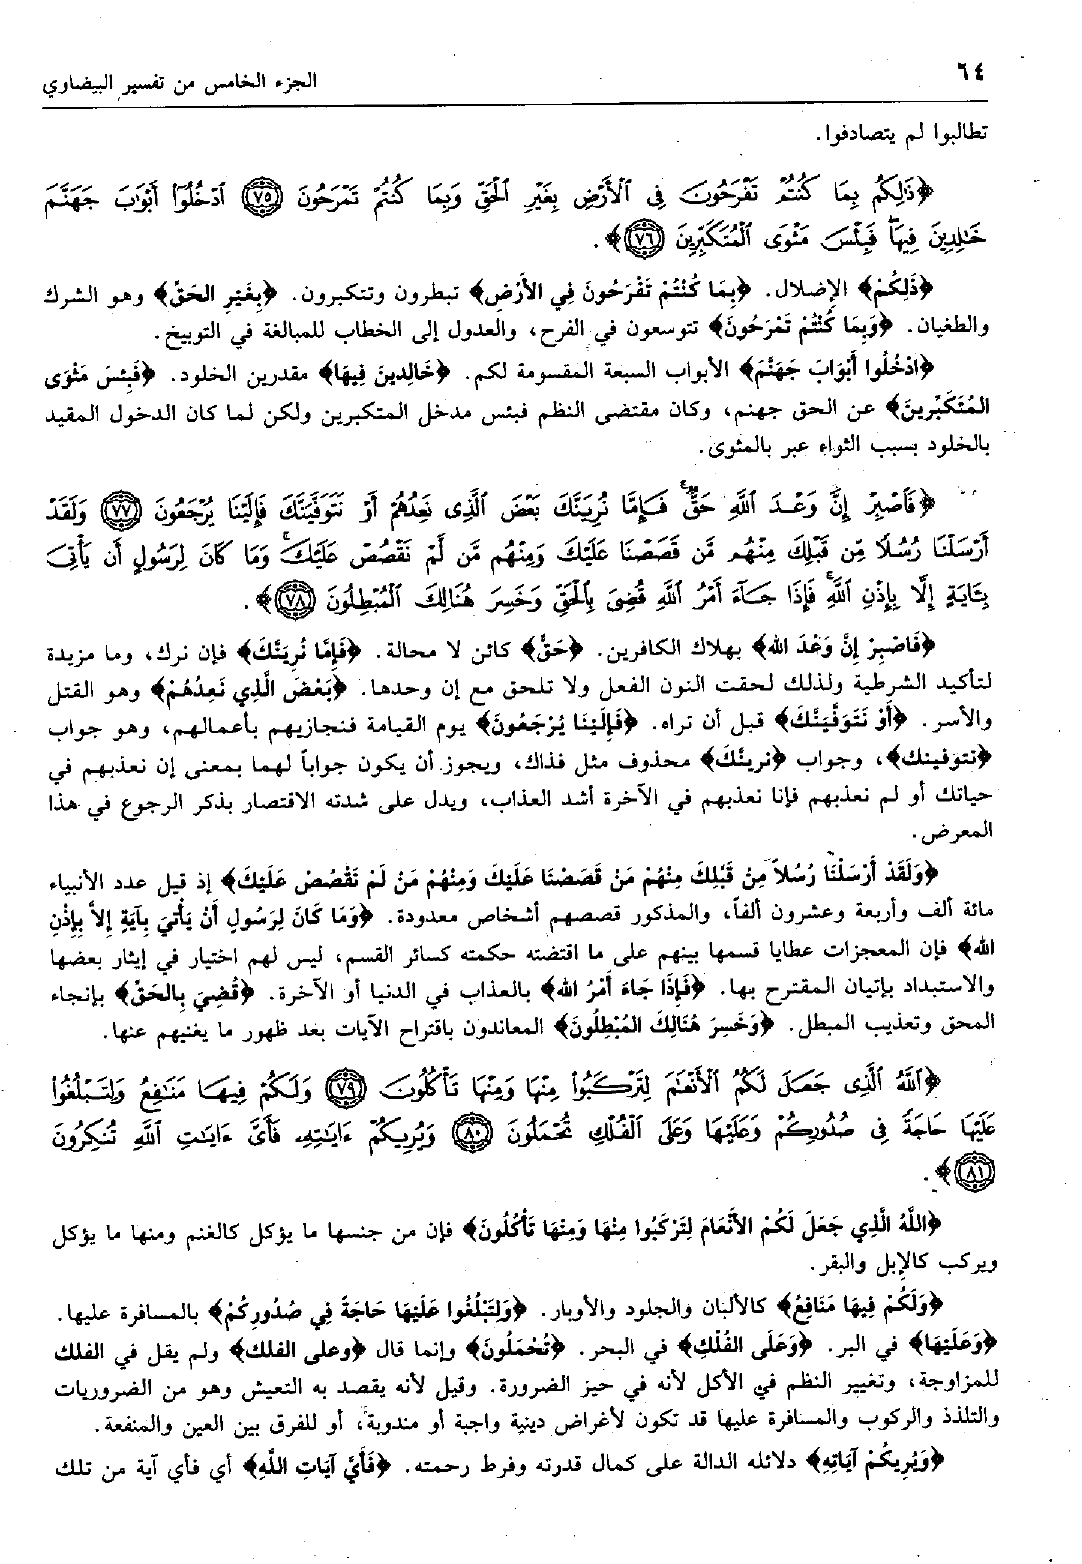 ٦٤
الجزء الخامس من تفسير البيضاوي
تطالبوا لم يتصادفوا.
﴿ذَٰلِكُم بِمَا كُنتُمْ تَفْرَحُونَ فِى ٱلْأَرْضِ بِغَيْرِ ٱلْحَقِّ وَبِمَا كُنتُمْ تَمْرَحُونَ ٧٥ ٱدْخُلُوٓا۟ أَبْوَٰبَ جَهَنَّمَ
خَٰلِدِينَ فِيهَا ۖ فَبِئْسَ مَثْوَى ٱلْمُتَكَبِّرِينَ ٧٦﴾.
﴿ذَلِكُمْ﴾ الإضلال. ﴿بِمَا كُنْتُمْ تَفْرَحُونَ فِي الأَرْضِ﴾ تبطرون وتتكبرون. ﴿بِغَيْرِ الحَقِّ﴾ وهو الشرك
والطغيان. ﴿وَبِمَا كُنْتُمْ تَمْرَحُونَ﴾ تتوسعون في الفرح، والعدول إلى الخطاب للمبالغة في التوبيخ.
﴿ادْخُلُوا أَبْوَابَ جَهَنَّمَ﴾ الأبواب السبعة المقسومة لكم. ﴿خَالِدِينَ فِيهَا﴾ مقدرين الخلود. ﴿فَبِئْسَ مَثْوَى
المُتَكَبِّرِينَ﴾ عن الحق جهنم، وكان مقتضى النظم فبئس مدخل المتكبرين ولكن لما كان الدخول المقيد
بالخلود بسبب الثواء عبر بالمثوى.
﴿فَٱصْبِرْ إِنَّ وَعْدَ ٱللَّهِ حَقٌّ ۚ فَإِمَّا نُرِيَنَّكَ بَعْضَ ٱلَّذِى نَعِدُهُمْ أَوْ نَتَوَفَّيَنَّكَ فَإِلَيْنَا يُرْجَعُونَ ٧٧ وَلَقَدْ
أَرْسَلْنَا رُسُلًا مِّن قَبْلِكَ مِنْهُم مَّن قَصَصْنَا عَلَيْكَ وَمِنْهُم مَّن لَّمْ نَقْصُصْ عَلَيْكَ ۗ وَمَا كَانَ لِرَسُولٍ أَن يَأْتِىَ
بِـَٔايَةٍ إِلَّا بِإِذْنِ ٱللَّهِ ۚ فَإِذَا جَآءَ أَمْرُ ٱللَّهِ قُضِىَ بِٱلْحَقِّ وَخَسِرَ هُنَالِكَ ٱلْمُبْطِلُونَ ٧٨﴾.
﴿فَاصْبِرْ إِنَّ وَعْدَ الله﴾ بهلاك الكافرين. ﴿حَقٌّ﴾ كائن لا محالة. ﴿فَإِمَّا نُرِيَنَّكَ﴾ فإن نرك، وما مزيدة
لتأكيد الشرطية ولذلك لحقت النون الفعل ولا تلحق مع إن وحدها. ﴿بَعْضَ الَّذِي نَعِدُهُمْ﴾ وهو القتل
والأسر. ﴿أَوْ نَتَوَفَّيَنَّكَ﴾ قبل أن تراه. ﴿فَإِلَيْنَا يُرْجَعُونَ﴾ يوم القيامة فنجازيهم بأعمالهم، وهو جواب
﴿نتوفينك﴾، وجواب ﴿نرينَّكَ﴾ محذوف مثل فذاك، ويجوز أن يكون جواباً لهما بمعنى إن نعذبهم في
حياتك أو لم نعذبهم فإنا نعذبهم في الآخرة أشد العذاب، ويدل على شدته الاقتصار بذكر الرجوع في هذا
المعرض.
﴿وَلَقَدْ أَرْسَلْنَا رُسُلاً مِنْ قَبْلِكَ مِنْهُمْ مَنْ قَصَصْنَا عَلَيْكَ وَمِنْهُمْ مَنْ لَمْ نَقْصُصْ عَلَيْكَ﴾ إذ قيل عدد الأنبياء
مائة ألف وأربعة وعشرون ألفاً، والمذكور قصصهم أشخاص معدودة. ﴿وَمَا كَانَ لِرَسُولٍ أَنْ يَأْتِيَ بِآيَةٍ إِلاَّ بِإِذْنِ
الله﴾ فإن المعجزات عطايا قسمها بينهم على ما اقتضته حكمته كسائر القسم، ليس لهم اختيار في إيثار بعضها
والاستبداد بإتيان المقترح بها. ﴿فَإِذَا جَاءَ أَمْرُ الله﴾ بالعذاب في الدنيا أو الآخرة. ﴿قُضِيَ بِالحَقِّ﴾ بإنجاء
المحق وتعذيب المبطل. ﴿وَخَسِرَ هُنَالِكَ المُبْطِلُونَ﴾ المعاندون باقتراح الآيات بعد ظهور ما يغنيهم عنها.
﴿ٱللَّهُ ٱلَّذِى جَعَلَ لَكُمُ ٱلْأَنْعَٰمَ لِتَرْكَبُوا۟ مِنْهَا وَمِنْهَا تَأْكُلُونَ ٧٩ وَلَكُمْ فِيهَا مَنَٰفِعُ وَلِتَبْلُغُوا۟
عَلَيْهَا حَاجَةً فِى صُدُورِكُمْ وَعَلَيْهَا وَعَلَى ٱلْفُلْكِ تُحْمَلُونَ ٨٠ وَيُرِيكُمْ ءَايَٰتِهِۦ فَأَىَّ ءَايَٰتِ ٱللَّهِ تُنكِرُونَ
٨١﴾.
﴿اللَّهُ الَّذِي جَعَلَ لَكُمْ الأَنْعَامَ لِتَرْكَبُوا مِنْهَا وَمِنْهَا تَأْكُلُونَ﴾ فإن من جنسها ما يؤكل كالغنم ومنها ما يؤكل
ويركب كالإبل والبقر.
﴿وَلَكُمْ فِيهَا مَنَافِعُ﴾ كالألبان والجلود والأوبار. ﴿وَلِتَبْلُغُوا عَلَيْهَا حَاجَةً فِي صُدُورِكُمْ﴾ بالمسافرة عليها.
﴿وَعَلَيْهَا﴾ في البر. ﴿وَعَلَى الفُلْكِ﴾ في البحر. ﴿تُحْمَلُونَ﴾ وإنما قال ﴿وعلى الفلك﴾ ولم يقل في الفلك
للمزاوجة، وتغيير النظم في الأكل لأنه في حيز الضرورة. وقيل لأنه يقصد به التعيش وهو من الضروريات
والتلذذ والركوب والمسافرة عليها قد تكون لأغراض دينية واجبة أو مندوبة، أو للفرق بين العين والمنفعة.
﴿وَيُرِيكُمْ آيَاتِهِ﴾ دلائله الدالة على كمال قدرته وفرط رحمته. ﴿فَأَيَّ آيَاتِ اللَّهِ﴾ أي فأي آية من تلك